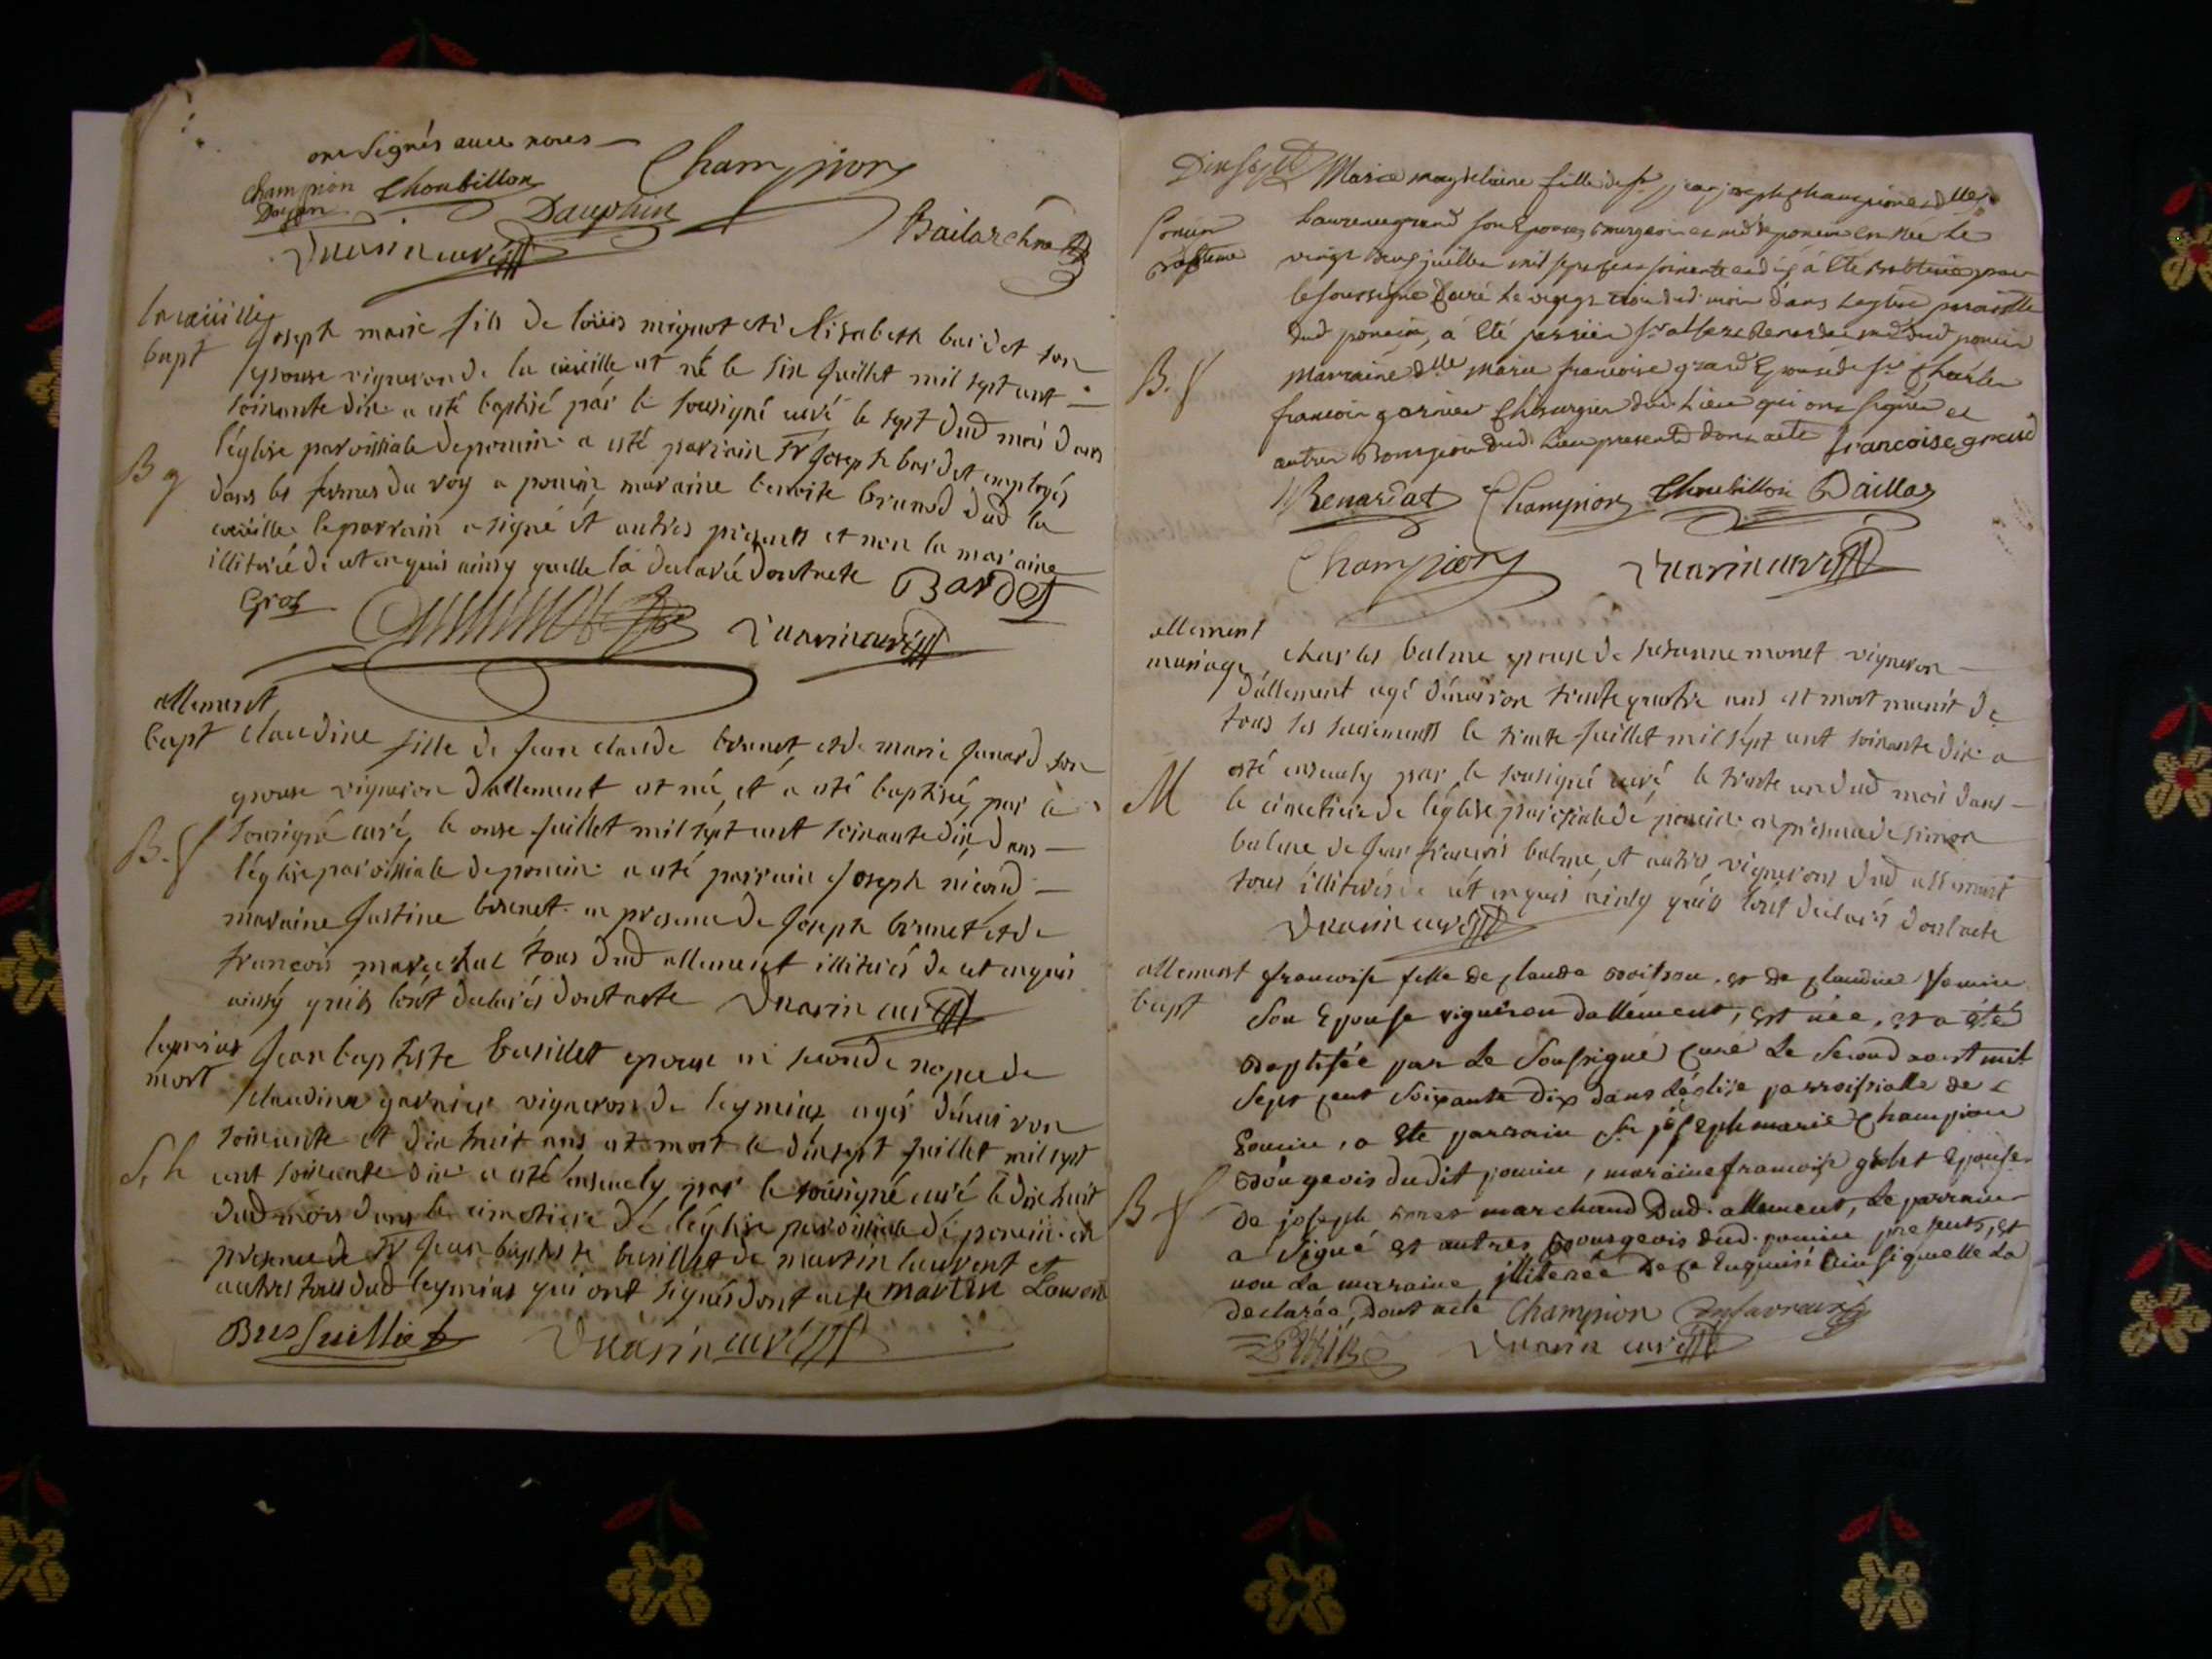 ont signés avec nous
Champion
Champion Choubillon
Dauphin
Duarin curé
la cüeille
bapt
Joseph marie fils de loüis mignot et d'Elisabeth bardet son
epouse vigneron de la cüeille est né le six Juillet mil sept cent
soixante dix a esté baptisé par le sousigné curé le sept dud mois dans
l'église paroissiale de poncin a esté parrain sr Joseph bardet employés
B g
dans les fermes du roy a poncin maraine benoite brunod dud la
cüeille le parrain a signé et autres présents et non la maraine
illiterée de cet enquis ainsy quelle la declarée dont acte Bardet
Duarin curé
allement
bapt
claudine fille de Jean claude brunet et de marie Junard son
epouse vigneron d'allement est née, et a esté baptisée par le
sousigné curé, le onze Juillet mil sept cent soixante dix, dans
B. f
l'église paroissiale de poncin a esté parrain Joseph nicoud
maraine Justine brunet en presence de Joseph brunet et de
françois marechal tous dud allement illiterés de cet enquis
ainsy quils l'ont declarés dont acte Duarin curé
leymiat
mort
Jean baptiste busillet epoux en seconde nopce de
claudine garnier vigneron de leymiat agés d'environ
soixante et dix huit ans est mort le dix sept Juillet mil sept
S. h
cent soixante dix a esté ensevely par le sousigné curé le dix huit
dud mois dans le cimetiere de l'église paroissiale de poncin en
presence de sr Jean baptiste busillet de martin laurent et
autres tous dud leymiat qui ont signés dont acte martin Lauren
Duarin curé
Dix sept
Marie magdelaine fille de sr jean joseph Champion et de dlle
Poncin
Bapteme
Laurence grand son Epouse, bourgeois et md de poncin est née Le
vingt deux juillet mil sept cens soixante et dix á Eté Baptisée par
le soussigné Curé Le vingt trois dud. mois dans Leglise paroissialle
dud poncin, á Eté parrien
B. f
Marraine dlle Marie francoise grand Epouse de sr Charles
francois garnier Chirurgien dud. Lieu qui ont signés et
autres Bourgeois dud. Lieu presents dont acte francoise grand
Renardat Champion Choubillon Baillod
Champion Duarin curé
allement
mariage
charles balme epoux de susanne monet vigneron
d'allement agé d'environ trente quatre ans est mort munit de
tous ses sacrements le trente Juillet mil sept cent soixante dix a
M
esté ensevely par le sousigné curé le trente un dud mois dans
le cimetiere de l'église paroissiale de poncin en presence de simon
balme de Jean françois balme, et autres vignerons dud allement
tous illiterés de cet enquis ainsy quils l'ont declarés dont acte
Duarin curé
allement
bapt
francoise fille de Claude Boitson, et de Claudine
Son Epouse vigneron dallement, est née, et a été
Baptisée par Le Soussigné Curé Le Second aout mil
Sept Cent Soixante Dix dans Léglise parroissialle de
Poncin, a été parrain Sr joseph marie Champion
Bourgeois dudit poncin, maraine francoise Epouse
B f
De joseph marchand Dud. allement, Le parrain
a Signé et autres Bourgeois dud. poncin presents, et
non La maraine, jlliterée De Ce Enquise ainsi quelle La
declarée, Dont acte Champion
Duarin curé